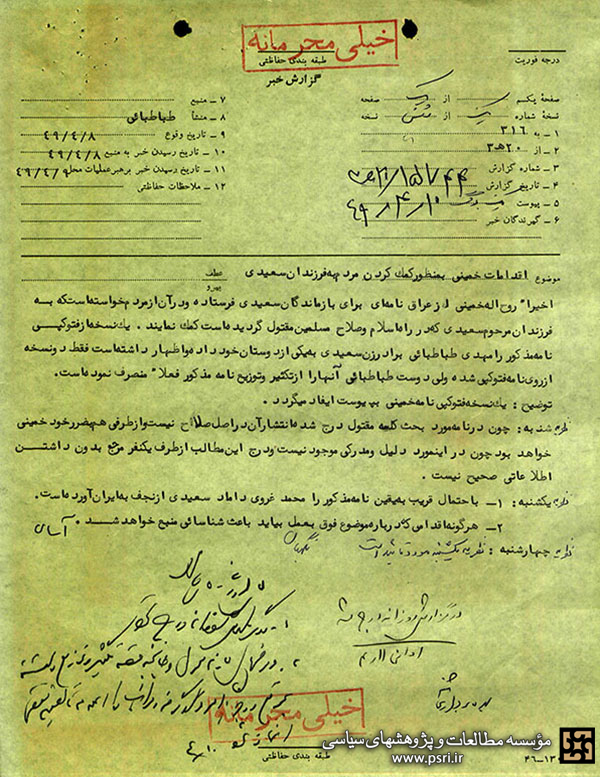 خیلی محرمانه
طبقه بندی حفاظتی
گزارش خبر
درجه فوریت
صفحه یکم از یک صفحه
نسخه شماره یک از شش نسخه
۱ – به ۳۱۶
۲ – از ۲۰ ه ۳
۳ – شماره گزارش
۴ – تاریخ گزارش ۴۹/۴/۱۰
۵ – پیوست
۶ – گیرندگان خبر
۷ – منبع
۸ – منشأ طباطبائی
۹ – تاریخ وقوع ۴۹/۴/۸
۱۰ – تاریخ رسیدن خبر به منبع ۴۹/۴/۸
۱۱ – تاریخ رسیدن خبر برهبر عملیات محل ۴۹/۴/۹
۱۲ – ملاحظات حفاظتی
موضوع اقدامات خمینی بمنظور کمک کردن مردم به فرزندان سعیدی
عطف
پیرو
اخیرا" روح اله خمینی از عراق نامه‌ای برای بازماندگان سعیدی فرستاده و در آن از مردم خواسته است که به
فرزندان مرحوم سعیدی که در راه اسلام و صلاح مسلمین مقتول گردیده است کمک نمایند . یك نسخه از فتوکپی
نامه مذکور را مهدی طباطبائی برادر زن سعیدی به یکی از دوستان خود داده و اظهار داشته است فقط دو نسخه
از روی نامه فتوکپی شده ولی دوست طباطبائی آنها را از تکثیر و توزیع نامه مذکور فعلا" منصرف نموده است.
توضیح : یك نسخه فتوکپی نامه خمینی به پیوست ایفاد میگردد .
نظریه شنبه : چون در نامه مورد بحث کلمه مقتول درج شده انتشار آن در اصل صلاح نیست و از طرفی هم بضرر خود خمینی
خواهد بود چون در اینمورد دلیل و مدرکی موجود نیست و درج این مطالب از طرف یکنفر مرجع بدون داشتن
اطلاعاتی صحیح نیست .
نظریه یکشنبه : ۱ – با احتمال قریب به یقین نامه مذکور را محمد غروی داماد سعیدی از نجف به ایران آورده است.
۲ – هرگونه اقدامی که درباره موضوع فوق بعمل بیاید باعث شناسائی منبع خواهد شد .
نظریه چهارشنبه : نظریه یکشنبه مورد تائید است
در گزارش روزانه درج شد
خیلی محرمانه
طبقه بندی حفاظتی
مؤسسه مطالعات و پژوهشهای سیاسی
www.psri.ir